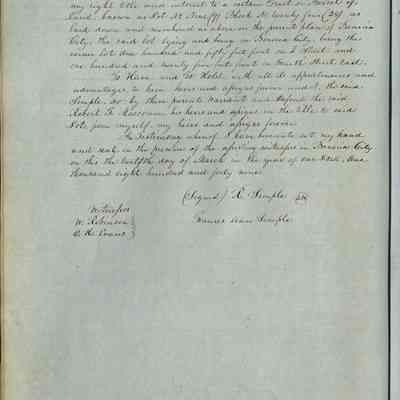 my right title and interest to a certain Tract or Parcel of
Land, known as Lot No Nine (9) Block No twenty four (24) as
laid down and numbered as above on the present plan of Benicia
City. the said lot lying and being in Benicia City, being the
corner lot one hundred and fifty feet front on I Street and
one hundred and twenty five feet front on Fourth Street East.
To Have and to Hold, with all its appurtenances and
advantages, to him his heirs and assigns forever and I, the said
Semple, do by these presents warrant and defend the said
Robert F. his heirs and assigns in the title to said
Lot, from myself, my heirs and assigns forever.
In Testimony whereof I have hereunto set my hand
and seal, in the presence of the attesting witnesses in Benicia City
on this the twelfth day of March in the year of our Lord, One
thousand eight hundred and forty nine.
(Signed) R. Semple
Witnesses
W. Robinson
Frances Ann Semple
O. H. Evans